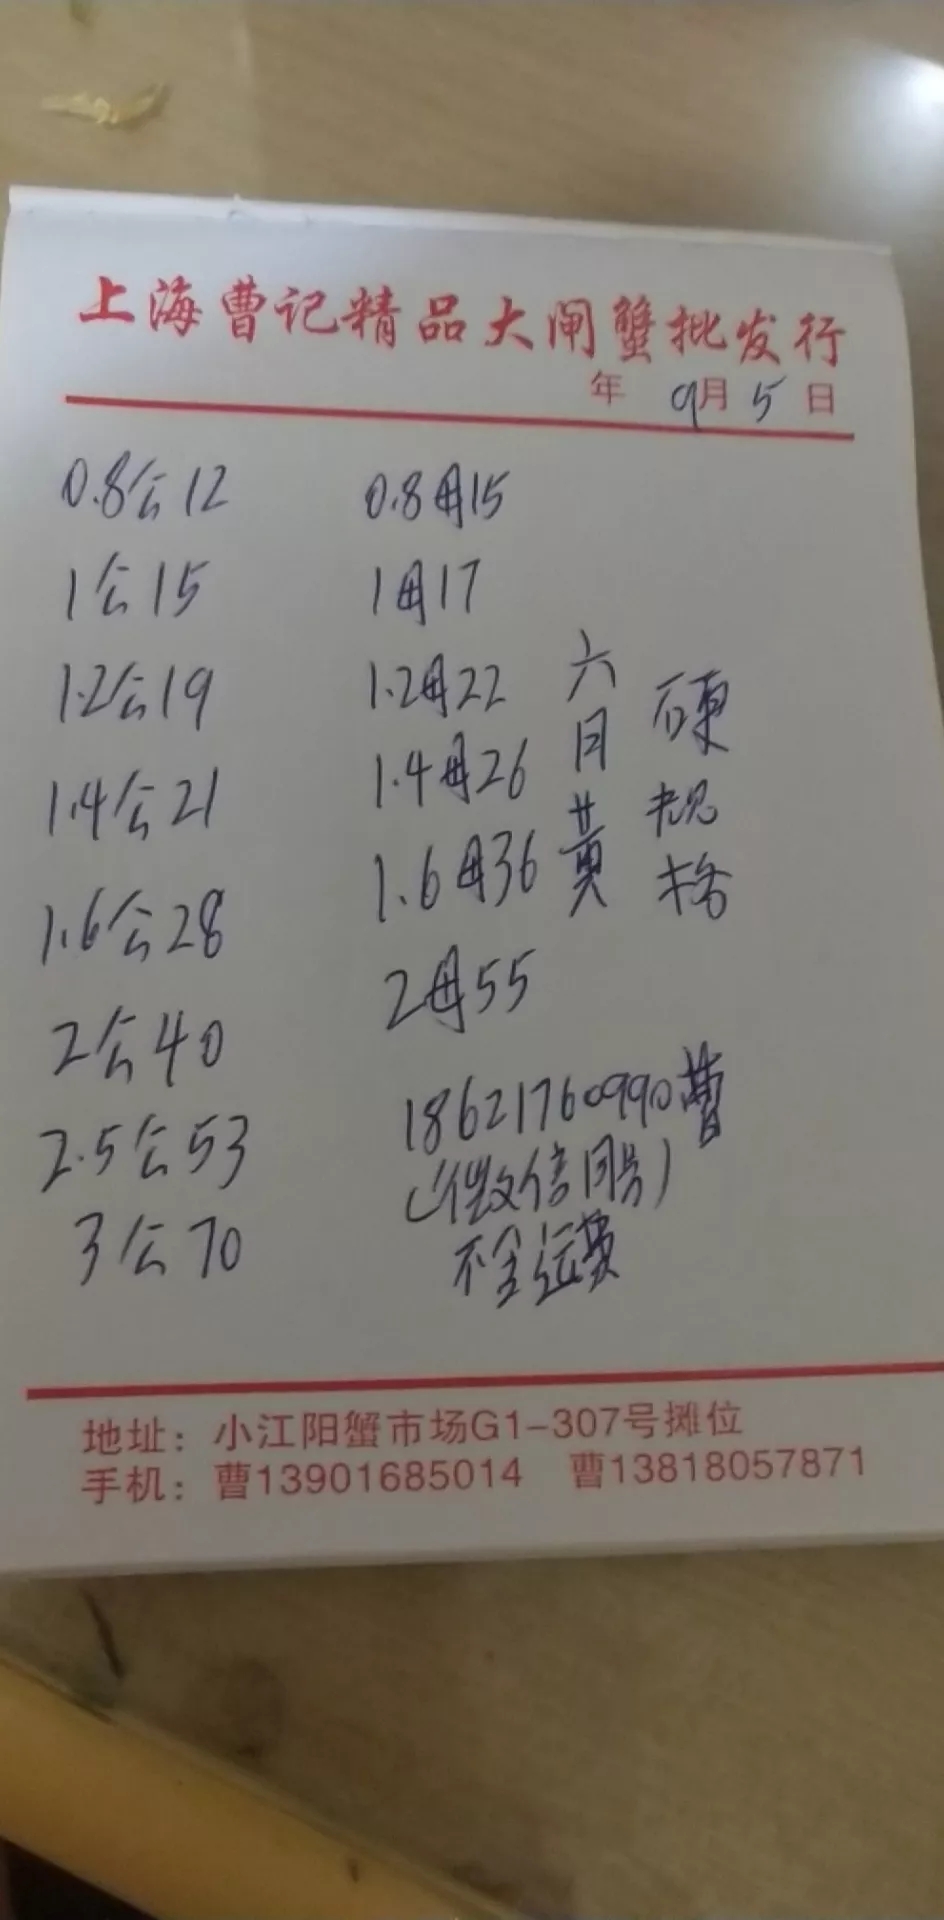 上海曹记精品大闸蟹批发行
年 9月 5 日
0.8公12 0.8母15
1公15 1母17
1.2公19 1.2母22
1.4公21 1.4母26
1.6公28 1.6母36
2公40 2母55
2.5公53
3公70
六月黄
硬规格
18621760990曹
(微信同号)
不含运费
地址：小江阳蟹市场G1-307号摊位
手机：曹13901685014 曹13818057871